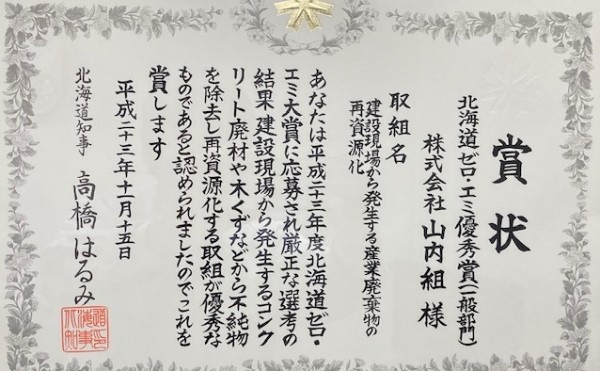 賞状
北海道ゼロ・エミ優秀賞(一般部門)
株式会社 山内組 様
取組名
建設現場から発生する産業廃棄物の
再資源化
あなたは平成二十三年度北海道ゼロ・
エミ大賞に応募され厳正な選考の
結果 建設現場から発生するコンク
リート廃材や木くずなどから不純物
を除去し再資源化する取組が優秀な
ものであると認められましたのでこれを
賞します
平成二十三年十一月十五日
北海道知事 高橋はるみ